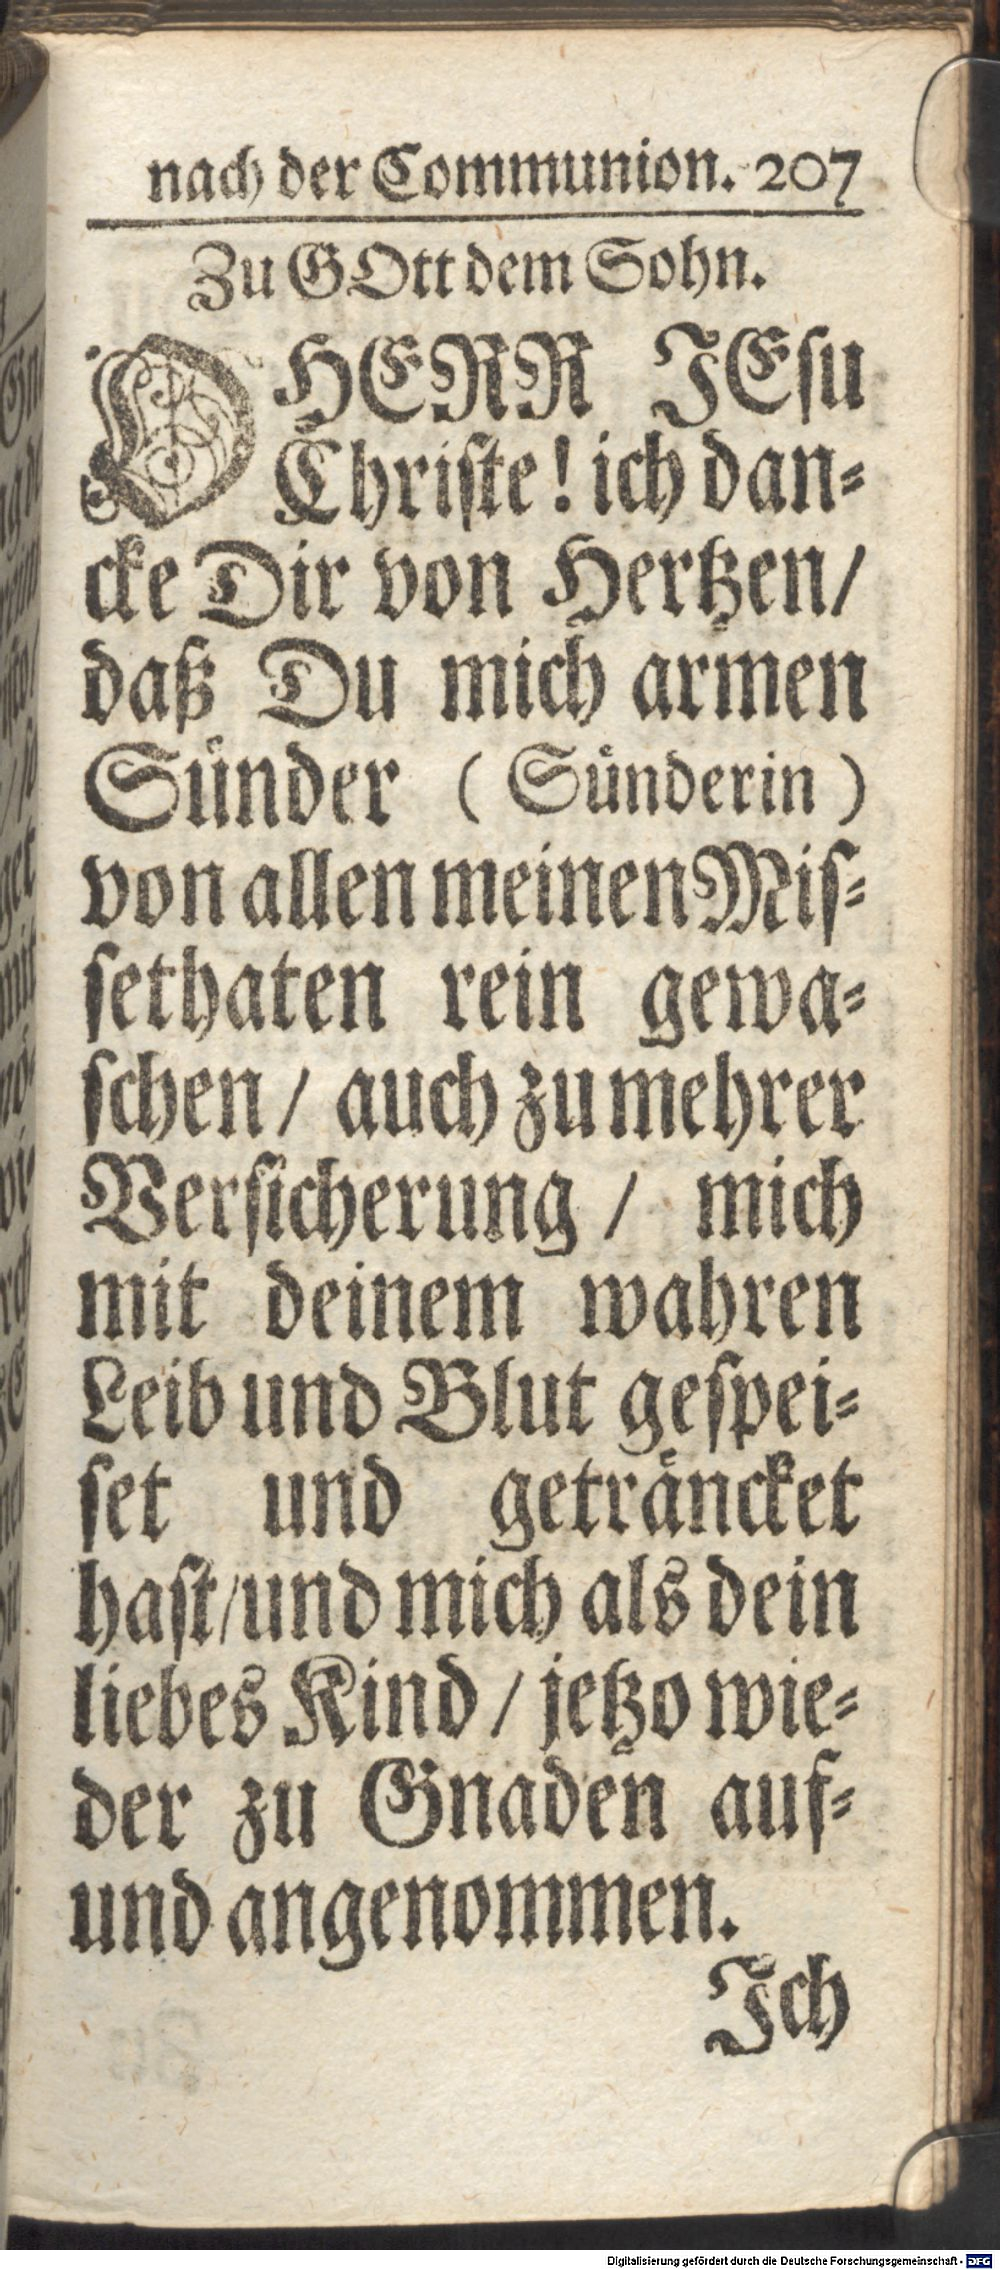 nach der Communion. 207
Zu GOtt dem Sohn.
O HERR JEsu
Christe! ich dan-
cke Dir von Hertzen/
daß Du mich armen
Sünder (Sünderin)
von allen meinen Mis-
sethaten rein gewa-
schen/ auch zu mehrer
Versicherung/ mich
mit deinem wahren
Leib und Blut gespei-
set und geträncket
hast/und mich als dein
liebes Kind/ jetzo wie-
der zu Gnaden auf-
und angenommen.
Jch
Digitalisierung gefördert durch die Deutsche Forschungsgemeinschaft - DFG